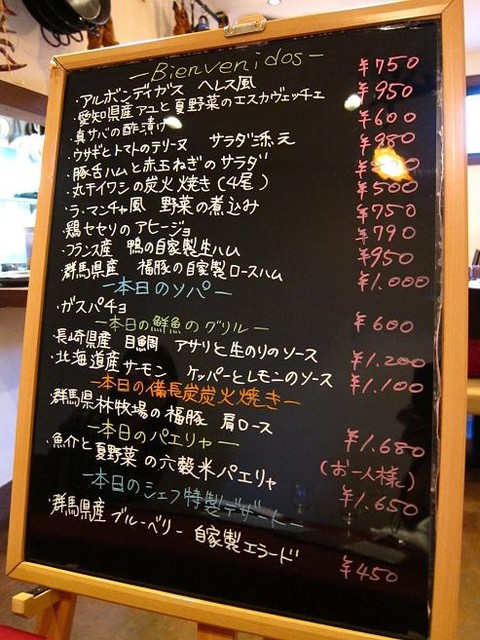 —Bienvenidos—
・アルボンディガス ヘレス風 ¥750
・愛知県産アユと夏野菜のエスカヴェッチェ ¥950
・真サバの酢漬け ¥600
・ウサギとトマトのテリーヌ サラダ添え ¥980
・豚舌ハムと赤玉ねぎのサラダ
・丸テイワシの炭火焼き(4尾) ¥500
・ラ・マンチャ風 野菜の煮込み ¥750
・鶏セセリのアヒージョ ¥790
・フランス産 鴨の自家製生ハム ¥950
・群馬県産 福豚の自家製ロースハム ¥1.000
—本日のソパ—
・ガスパチョ ¥600
—本日の鮮魚のグリル—
・長崎県産 目鯛 アサリと生のりのソース ¥1.200
・北海道産サーモン ケッパーとレモンのソース ¥1.100
—本日の備長炭炭火焼き—
・群馬県林牧場の福豚 肩ロース ¥1.680
—本日のパエリャ— (お一人様)
・魚介と夏野菜の六穀米パエリャ ¥1.650
—本日のシェフ特製デザート—
・群馬県産ブルーベリー 自家製エラード ¥450